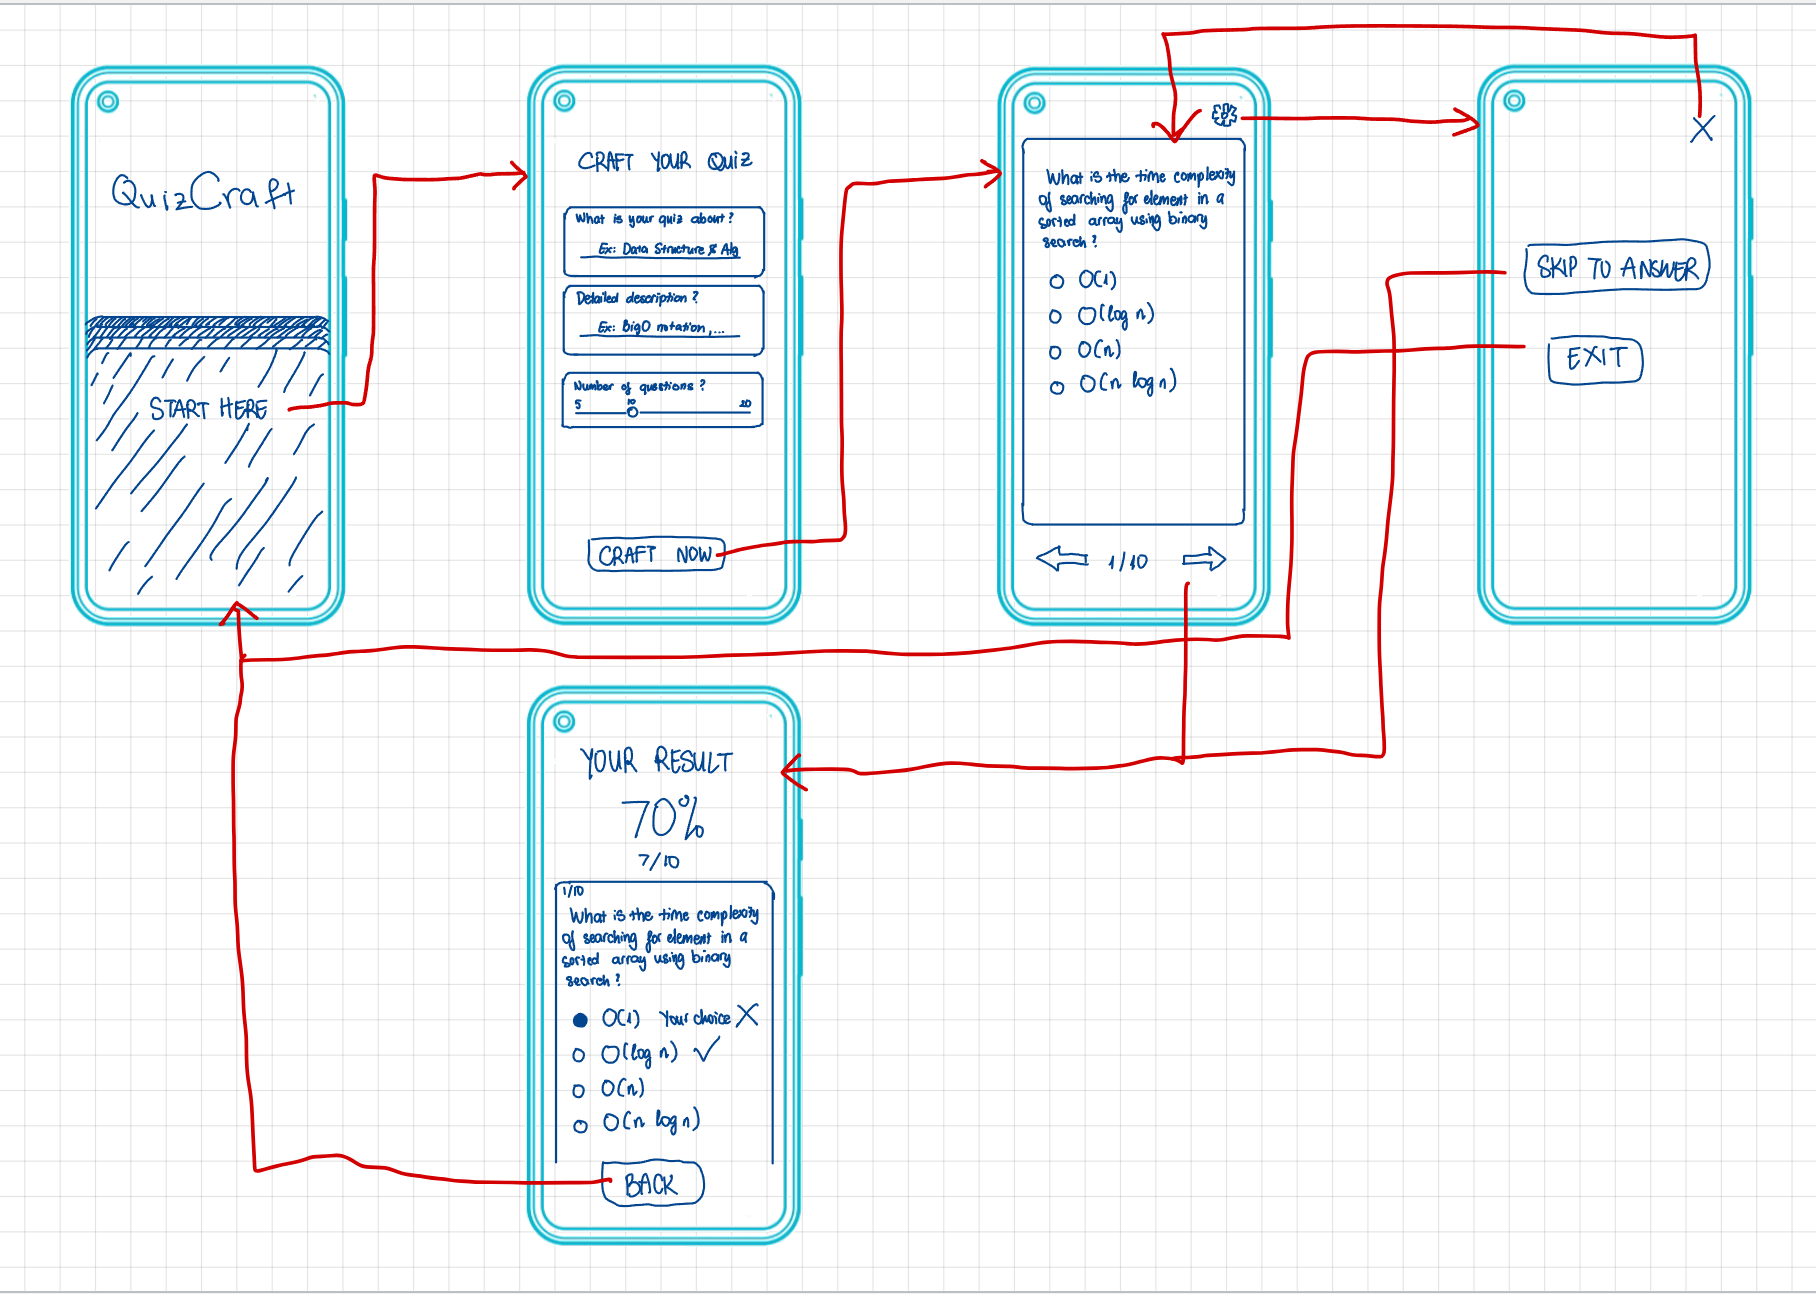 QuizCraft
START HERE
CRAFT YOUR QuiZ
What is your quiz about?
Ex: Data Structure & Alg
Detailed description?
Ex: BigO notation,...
Number of questions?
5 10 20
CRAFT NOW
What is the time complexity
of searching for element in a
sorted array using binary
search?
O(1)
O(log n)
O(n)
O(n log n)
1/10
X
SKIP TO ANSWER
EXIT
YOUR RESULT
70%
7/10
1/10
What is the time complexity
of searching for element in a
sorted array using binary
search?
O(1) Your choice X
O(log n) ✓
O(n)
O(n log n)
BACK